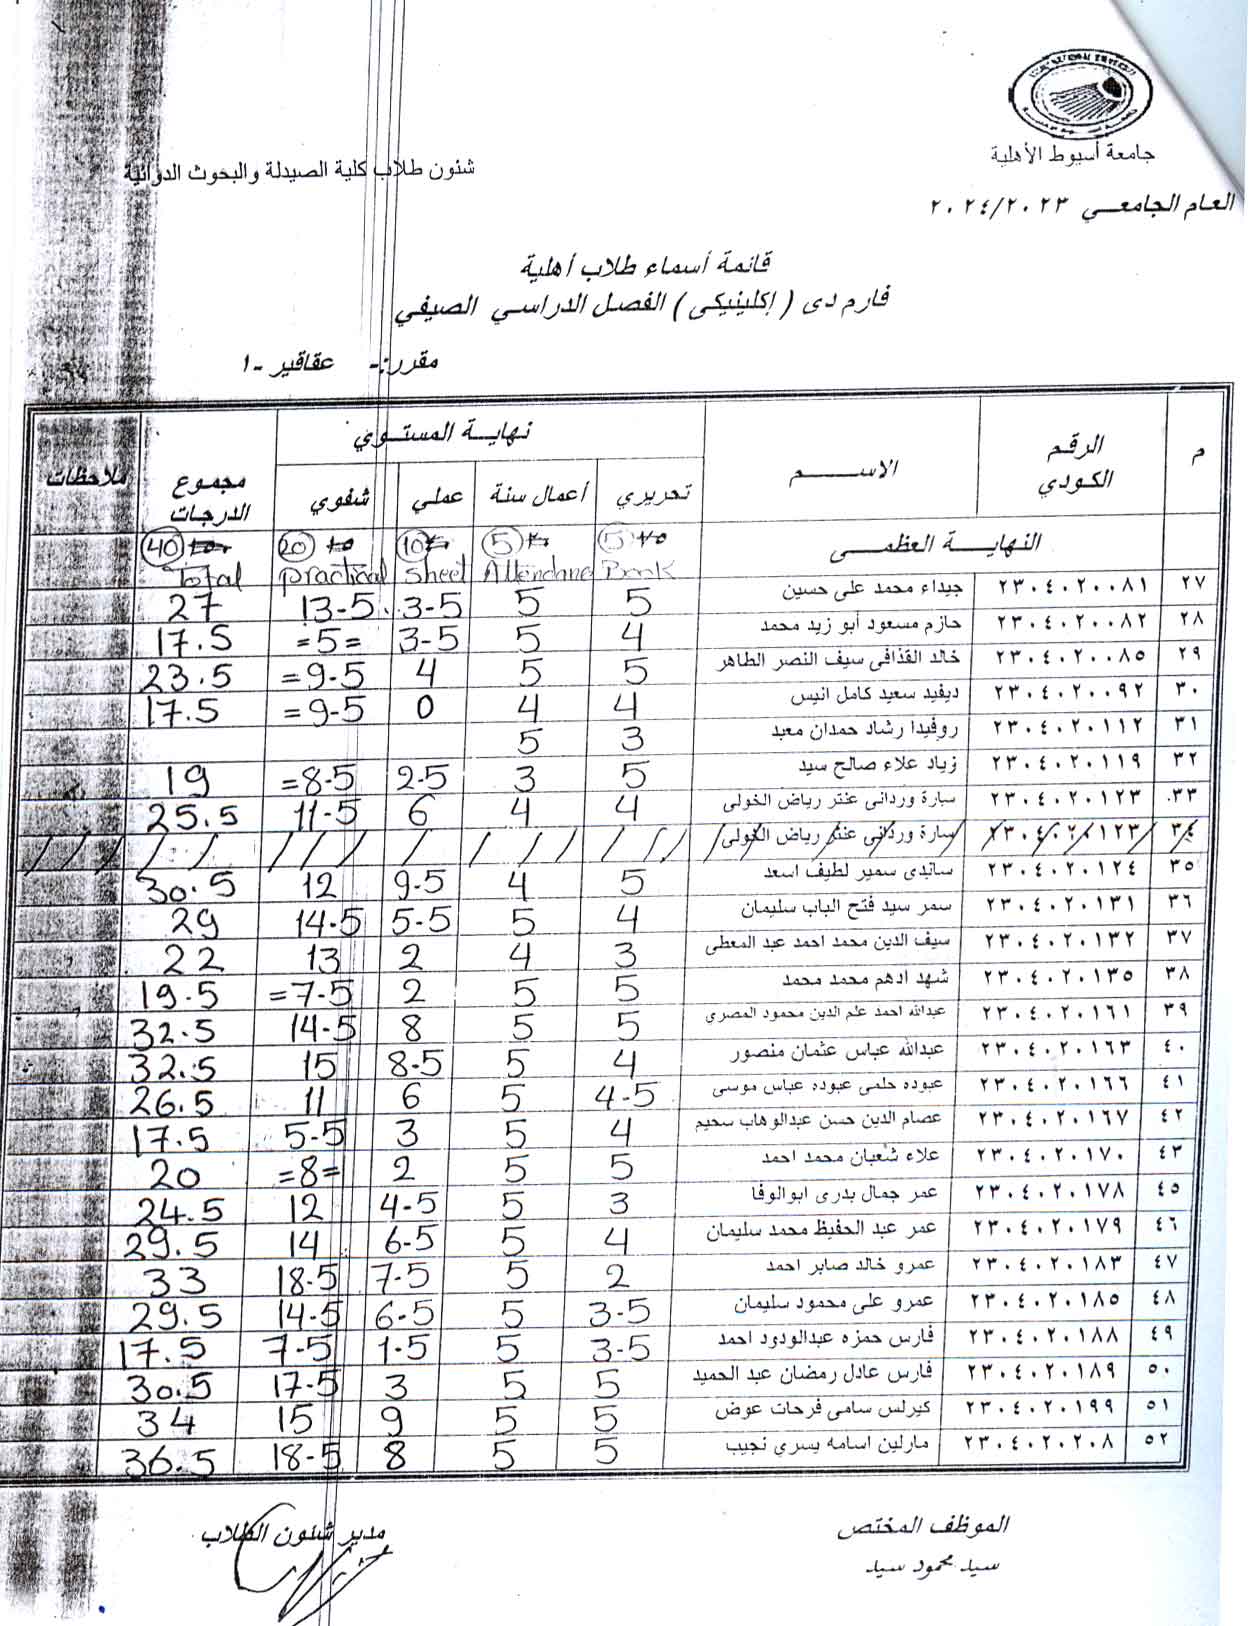 جامعة أسيوط الأهلية
شئون طلاب كلية الصيدلة والبحوث الدوائية
العام الجامعـي ٢٠٢٤/٢٠٢٣
قائمة أسماء طلاب أهلية
فارم دى ( إكلينيكى ) الفصل الدراسي الصيفي
مقرر:- عقاقير -١
م الرقم الكودي الاســـم نهايـة المستـوي مجموع الدرجات ملاحظات
تحريري أعمال سنة عملي شفوي
النهايـة العظمـى 5 5 10 20 40
Book Attendance Sheet practical Total
٢٧ ٢٣٠٤٠٢٠٠٨١ جيداء محمد على حسين 5 5 3-5 13-5 27
٢٨ ٢٣٠٤٠٢٠٠٨٢ حازم مسعود أبو زيد محمد 4 5 3-5 =5= 17.5
٢٩ ٢٣٠٤٠٢٠٠٨٥ خالد القذافى سيف النصر الطاهر 5 5 4 =9-5 23.5
٣٠ ٢٣٠٤٠٢٠٠٩٢ ديفيد سعيد كامل انيس 4 4 0 =9-5 17.5
٣١ ٢٣٠٤٠٢٠١١٢ روفيدا رشاد حمدان معبد 3 5
٣٢ ٢٣٠٤٠٢٠١١٩ زياد علاء صالح سيد 5 3 2-5 =8-5 19
٣٣ ٢٣٠٤٠٢٠١٢٣ سارة وردانى عنتر رياض الخولى 4 4 6 11-5 25.5
٣٤ ٢٣٠٤٠٢٠١٢٣ سارة وردانى عنتر رياض الخولى
٣٥ ٢٣٠٤٠٢٠١٢٤ ساندى سمير لطيف اسعد 5 4 9-5 12 30.5
٣٦ ٢٣٠٤٠٢٠١٣١ سمر سيد فتح الباب سليمان 4 5 5-5 14-5 29
٣٧ ٢٣٠٤٠٢٠١٣٢ سيف الدين محمد احمد عبد المعطى 3 4 2 13 22
٣٨ ٢٣٠٤٠٢٠١٣٥ شهد ادهم محمد محمد 5 5 2 =7-5 19.5
٣٩ ٢٣٠٤٠٢٠١٦١ عبدالله احمد علم الدين محمود المصري 5 5 8 14-5 32.5
٤٠ ٢٣٠٤٠٢٠١٦٣ عبدالله عباس عثمان منصور 4 5 8-5 15 32.5
٤١ ٢٣٠٤٠٢٠١٦٦ عبوده حلمى عبوده عباس موسى 4-5 5 6 11 26.5
٤٢ ٢٣٠٤٠٢٠١٦٧ عصام الدين حسن عبدالوهاب سحيم 4 5 3 5-5 17.5
٤٣ ٢٣٠٤٠٢٠١٧٠ علاء شعبان محمد احمد 5 5 2 =8= 20
٤٥ ٢٣٠٤٠٢٠١٧٨ عمر جمال بدرى ابوالوفا 3 5 4-5 12 24.5
٤٦ ٢٣٠٤٠٢٠١٧٩ عمر عبد الحفيظ محمد سليمان 4 5 6-5 14 29.5
٤٧ ٢٣٠٤٠٢٠١٨٣ عمرو خالد صابر احمد 2 5 7-5 18-5 33
٤٨ ٢٣٠٤٠٢٠١٨٥ عمرو على محمود سليمان 3-5 5 6-5 14-5 29.5
٤٩ ٢٣٠٤٠٢٠١٨٨ فارس حمزه عبدالودود احمد 3-5 5 1-5 7-5 17.5
٥٠ ٢٣٠٤٠٢٠١٨٩ فارس عادل رمضان عبد الحميد 5 5 3 17-5 30.5
٥١ ٢٣٠٤٠٢٠١٩٩ كيرلس سامى فرحات عوض 5 5 9 15 34
٥٢ ٢٣٠٤٠٢٠٢٠٨ مارلين اسامه يسري نجيب 5 5 8 18-5 36.5
الموظف المختص مدير شئون الطلاب
سيد محمود سيد